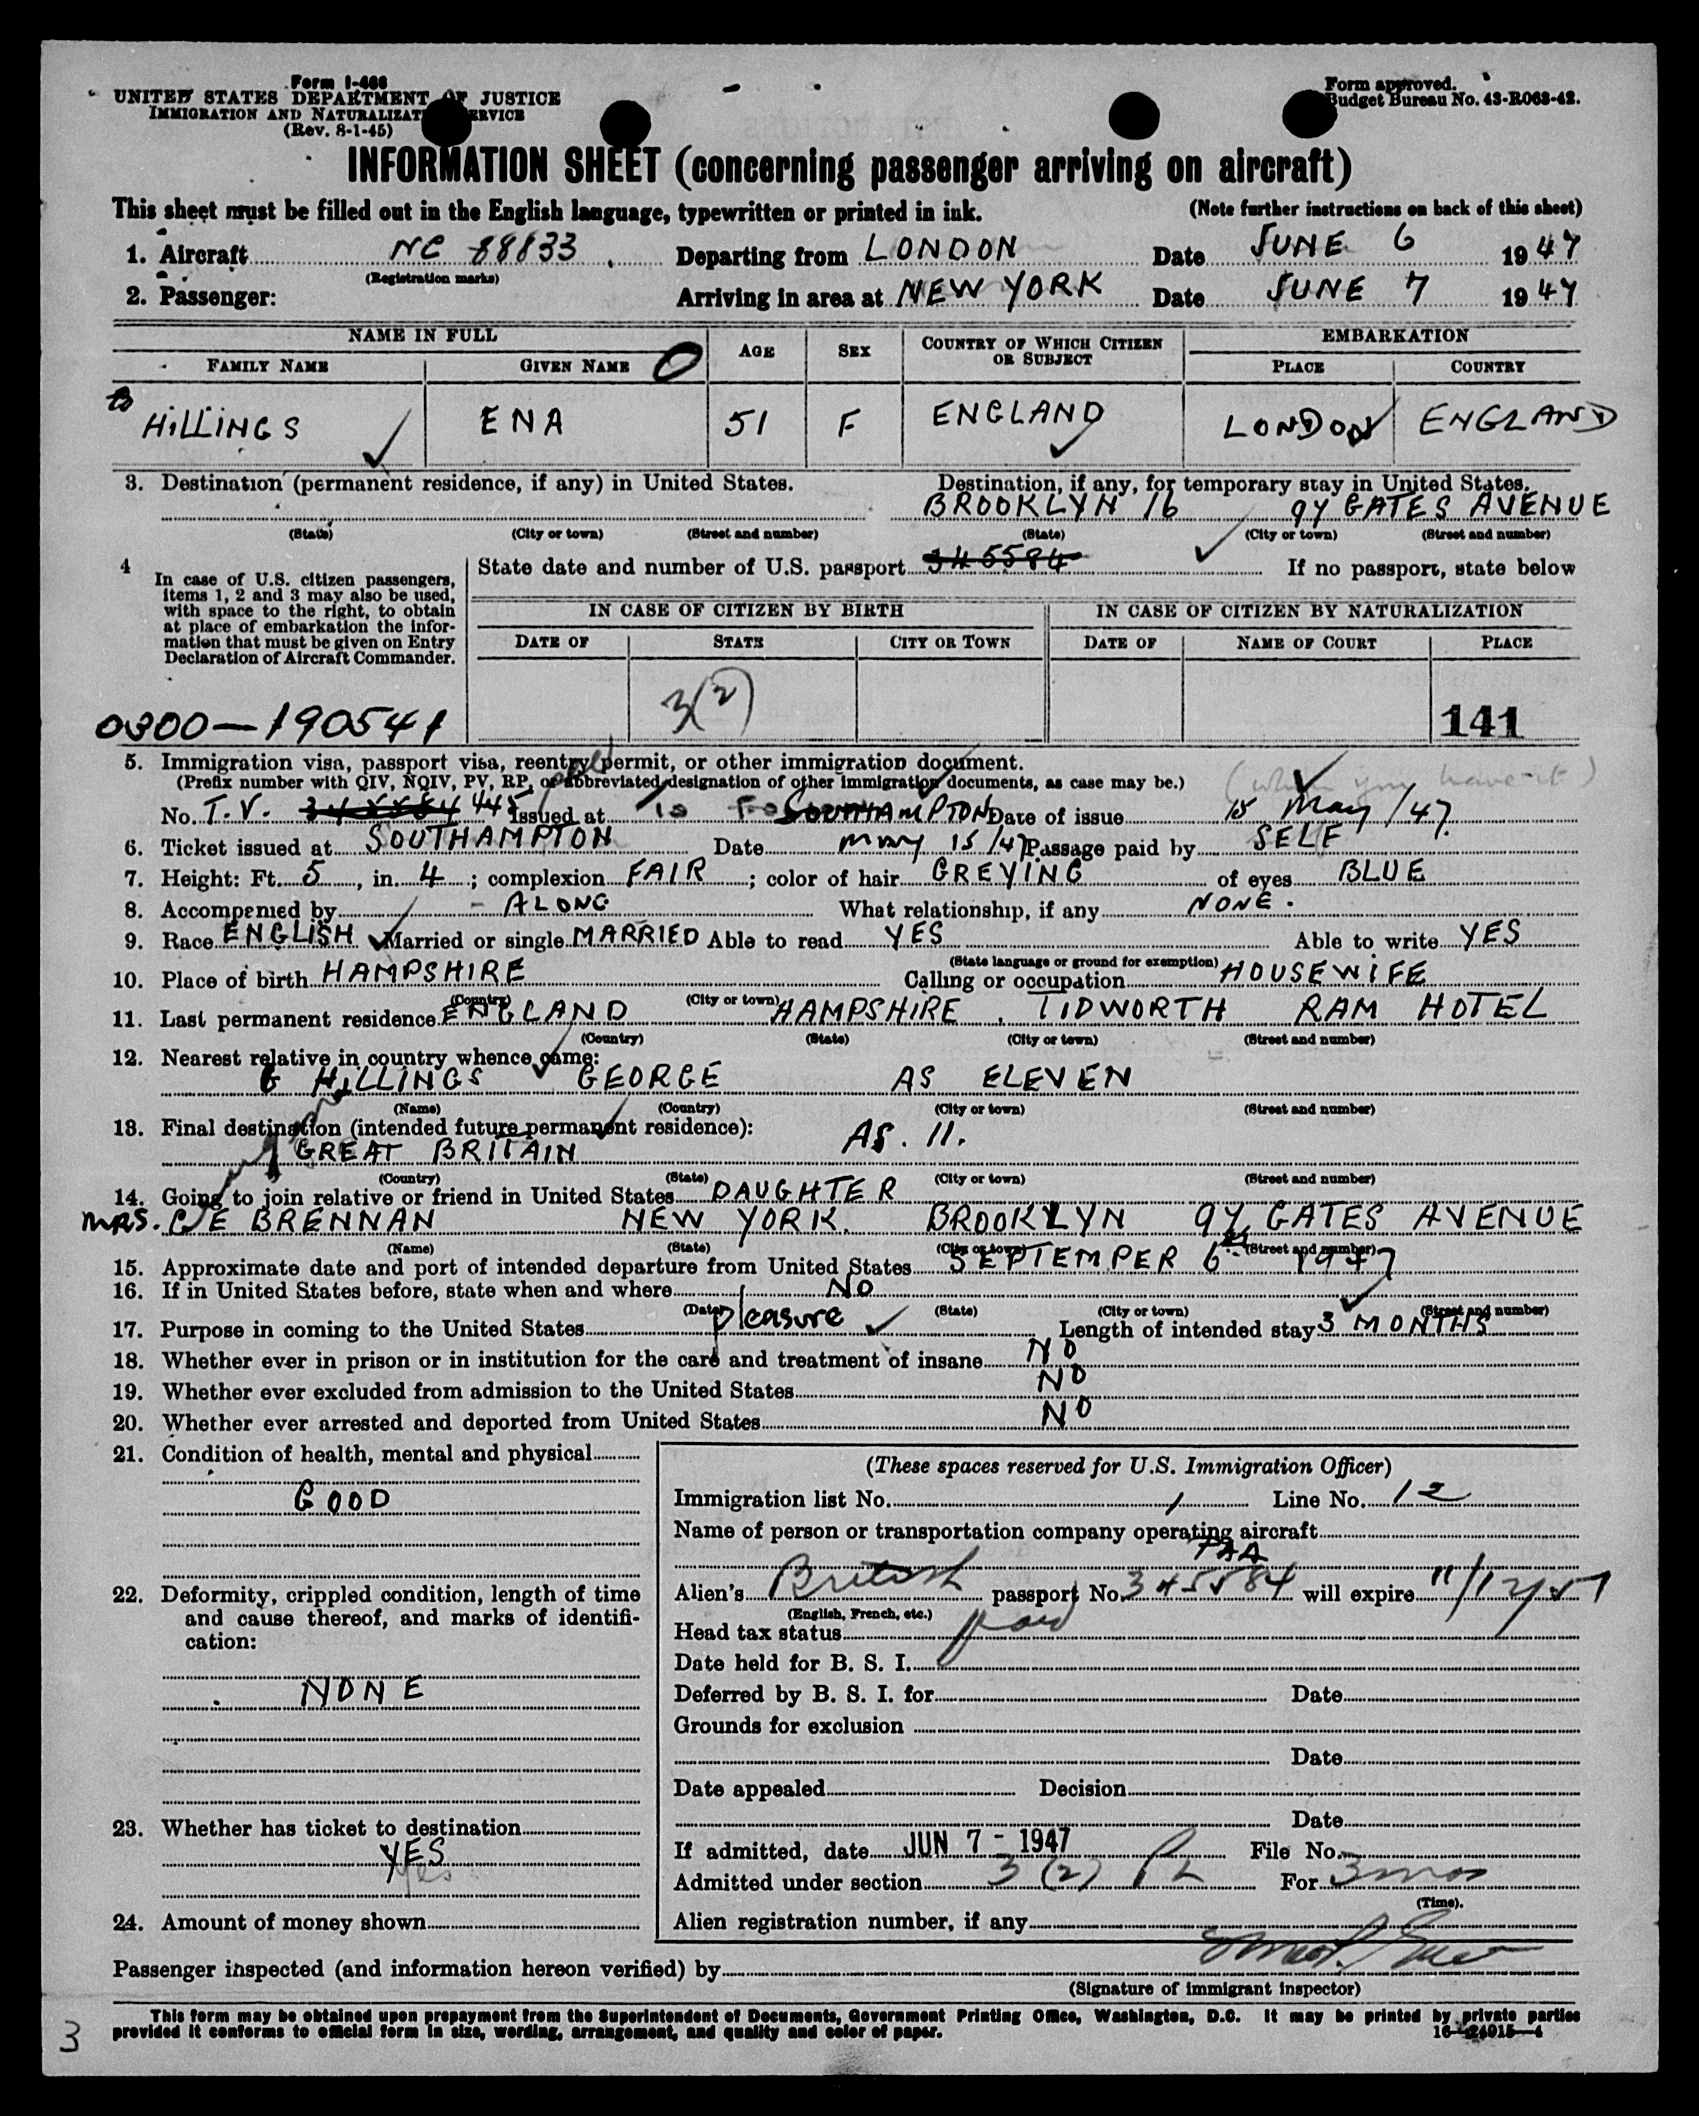 Form I-466
UNITED STATES DEPARTMENT OF JUSTICE
IMMIGRATION AND NATURALIZATION SERVICE
(Rev. 8-1-45)
Form approved.
Budget Bureau No. 43-R063-42.
INFORMATION SHEET (concerning passenger arriving on aircraft)
This sheet must be filled out in the English language, typewritten or printed in ink.
(Note further instructions on back of this sheet)
1. Aircraft NC 88833 Departing from LONDON Date JUNE 6 1947
(Registration marks)
2. Passenger: Arriving in area at NEW YORK Date JUNE 7 1947
NAME IN FULL AGE SEX COUNTRY OF WHICH CITIZEN OR SUBJECT EMBARKATION
FAMILY NAME GIVEN NAME PLACE COUNTRY
HILLINGS ENA 51 F ENGLAND LONDON ENGLAND
3. Destination (permanent residence, if any) in United States. Destination, if any, for temporary stay in United States.
BROOKLYN 16 97 GATES AVENUE
(State) (City or town) (Street and number) (State) (City or town) (Street and number)
4 In case of U.S. citizen passengers, items 1, 2 and 3 may also be used, with space to the right, to obtain at place of embarkation the information that must be given on Entry Declaration of Aircraft Commander.
State date and number of U.S. passport 345584 If no passport, state below
IN CASE OF CITIZEN BY BIRTH IN CASE OF CITIZEN BY NATURALIZATION
DATE OF STATE CITY OR TOWN DATE OF NAME OF COURT PLACE
3(2) 141
0300-190541
5. Immigration visa, passport visa, reentry permit, or other immigration document.
(Prefix number with QIV, NQIV, PV, RP, or abbreviated designation of other immigration documents, as case may be.)
No. T.V. 445 Issued at SOUTHAMPTON Date of issue 15 May/47.
6. Ticket issued at SOUTHAMPTON Date May 15/47 Passage paid by SELF
7. Height: Ft. 5, in. 4; complexion FAIR; color of hair GREYING of eyes BLUE
8. Accompanied by - ALONG What relationship, if any NONE.
9. Race ENGLISH Married or single MARRIED Able to read YES Able to write YES
(State language or ground for exemption)
10. Place of birth HAMPSHIRE Calling or occupation HOUSEWIFE
(Country) (City or town)
11. Last permanent residence ENGLAND HAMPSHIRE, TIDWORTH RAM HOTEL
(Country) (State) (City or town) (Street and number)
12. Nearest relative in country whence came:
G HILLINGS GEORGE AS ELEVEN
(Name) (Country) (City or town) (Street and number)
13. Final destination (intended future permanent residence):
GREAT BRITAIN AS. 11.
(Country) (State) (City or town) (Street and number)
14. Going to join relative or friend in United States DAUGHTER
MRS. C E BRENNAN NEW YORK. BROOKLYN 97 GATES AVENUE
(Name) (State) (City or town) (Street and number)
15. Approximate date and port of intended departure from United States SEPTEMPER 6th 1947
16. If in United States before, state when and where NO
(Date) (State) (City or town) (Street and number)
17. Purpose in coming to the United States pleasure Length of intended stay 3 MONTHS
18. Whether ever in prison or in institution for the care and treatment of insane NO
19. Whether ever excluded from admission to the United States NO
20. Whether ever arrested and deported from United States NO
21. Condition of health, mental and physical
GOOD
22. Deformity, crippled condition, length of time and cause thereof, and marks of identification:
NONE
23. Whether has ticket to destination
YES
Yes
24. Amount of money shown
(These spaces reserved for U.S. Immigration Officer)
Immigration list No. 1 Line No. 12
Name of person or transportation company operating aircraft
PAA
Alien's British passport No. 345584 will expire
(English, French, etc.)
Head tax status paid
Date held for B. S. I.
Deferred by B. S. I. for Date
Grounds for exclusion
Date
Date appealed Decision
Date
If admitted, date JUN 7 - 1947 File No.
Admitted under section 3 (2) For 3 mos
(Time).
Alien registration number, if any
Passenger inspected (and information hereon verified) by
(Signature of immigrant inspector)
This form may be obtained upon prepayment from the Superintendent of Documents, Government Printing Office, Washington, D.C. It may be printed by private parties
provided it conforms to official form in size, wording, arrangement, and quality and color of paper.
16-24015-4
3